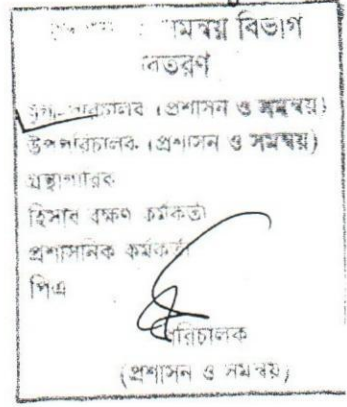 সমন্বয় বিভাগ
বিতরণ
যুগ্ম-পরিচালক (প্রশাসন ও সমন্বয়)
উপপরিচালক (প্রশাসন ও সমন্বয়)
গ্রন্থাগারিক
হিসাব রক্ষণ কর্মকর্তা
প্রশাসনিক কর্মকর্তা
পিএ
পরিচালক
(প্রশাসন ও সমন্বয়)